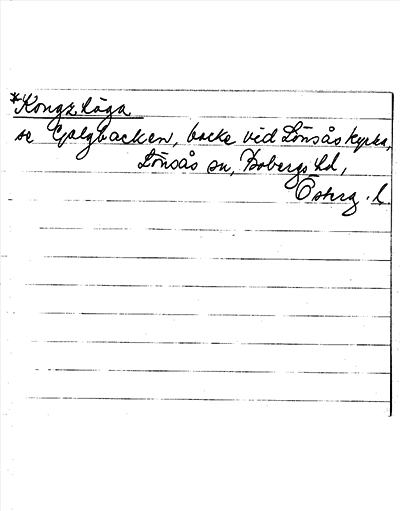 *Kongz låga
se Galgbacken, backe vid Lönsås kyrka,
Lönsås sn, Bobergs hd,
Österg. l.